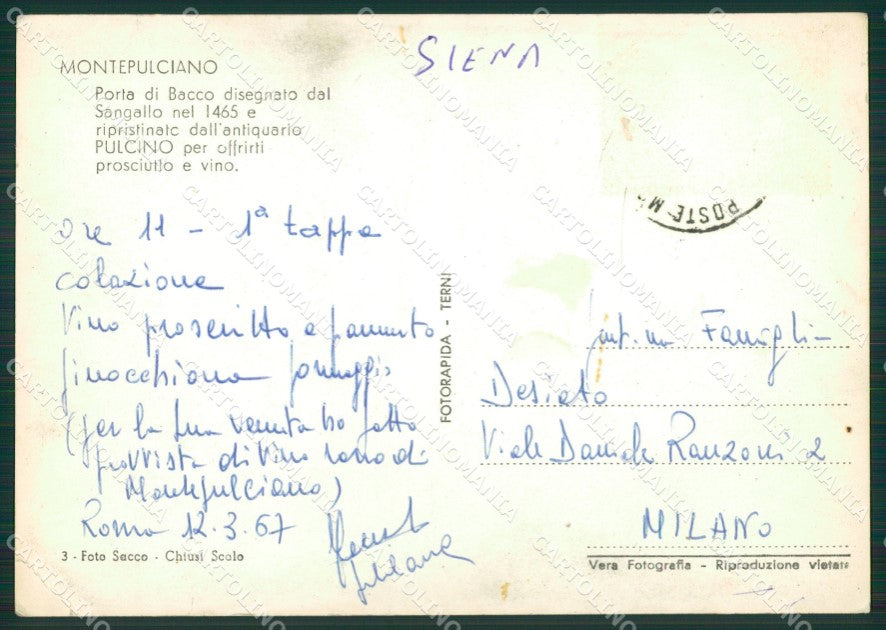 SIENA
MONTEPULCIANO
Porta di Bacco disegnato dal
Sangallo nel 1465 e
ripristinato dall'antiquario
PULCINO per offrirti
prosciutto e vino.
POSTE M
ore 11 - 1ª tappa
colazione
Vino prosciutto e pannunto
finocchiona formaggio
(per la tua venuta ho fatto
provvista di vino rosso di
Montepulciano)
Roma 12.3.67
3 - Foto Sacco - Chiusi Scalo
FOTORAPIDA - TERNI
Famiglia
Desiato
Viale Daniele Ranzoni 2
MILANO
Vera Fotografia - Riproduzione vietata
CARTOLINOMANIA